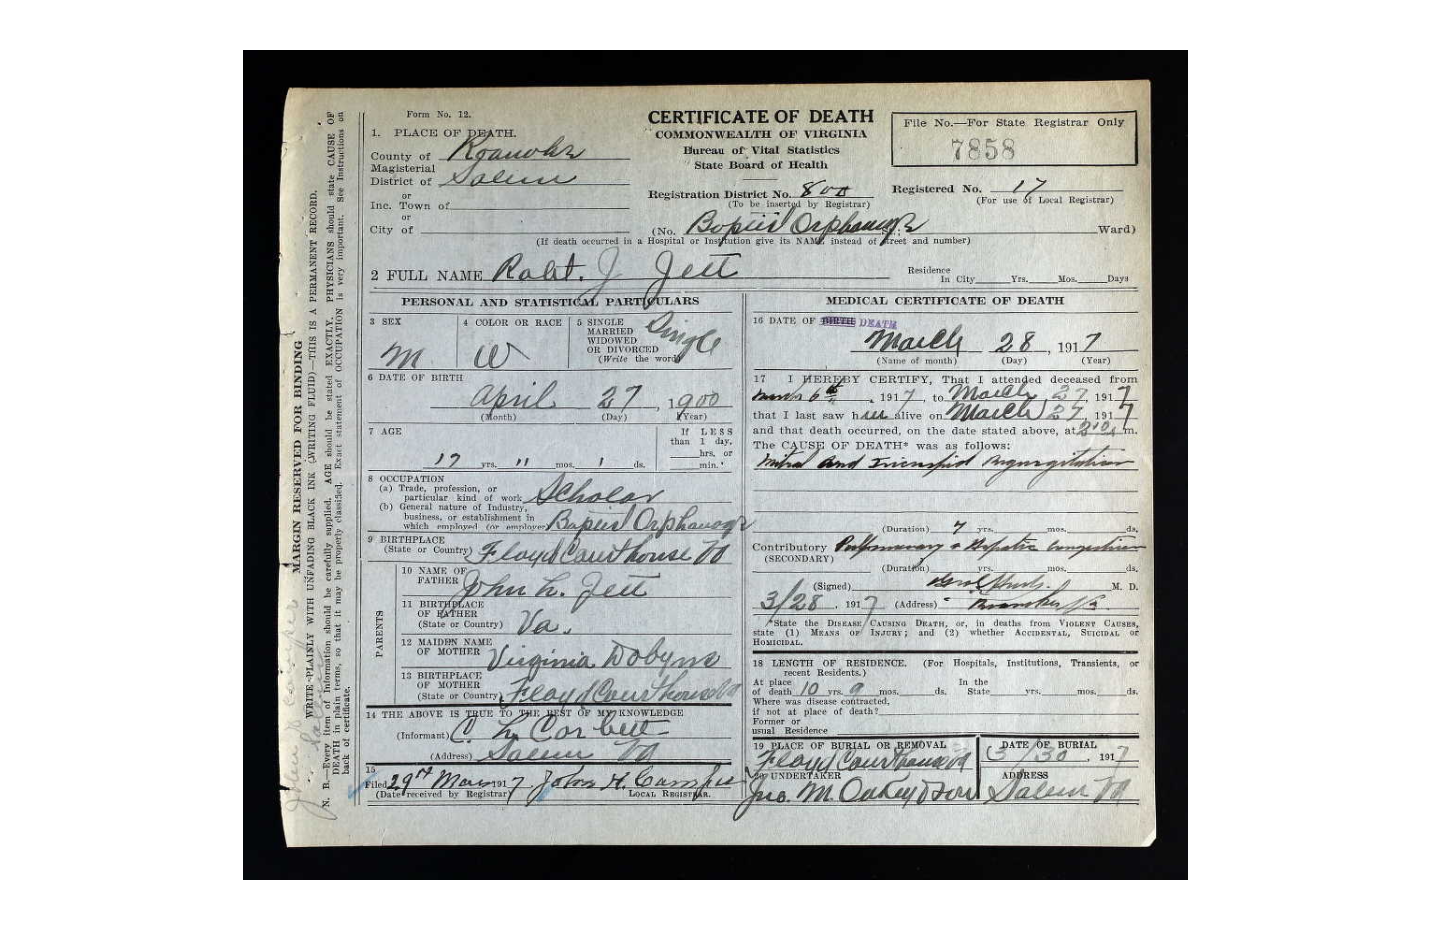 Form No. 12.
CERTIFICATE OF DEATH
COMMONWEALTH OF VIRGINIA
Bureau of Vital Statistics
State Board of Health
File No.—For State Registrar Only
7858
1. PLACE OF DEATH.
County of Roanoke
Magisterial
District of Salem
or
Inc. Town of
or
City of
Registration District No. 800
(To be inserted by Registrar)
Registered No. 17
(For use of Local Registrar)
(No. Baptist Orphanage St.; Ward)
(If death occurred in a Hospital or Institution give its NAME instead of street and number)
2 FULL NAME Robt. J Jett
Residence
In City Yrs. Mos. Days
PERSONAL AND STATISTICAL PARTICULARS
3 SEX
M
4 COLOR OR RACE
W
5 SINGLE
MARRIED
WIDOWED
OR DIVORCED
(Write the word)
Single
6 DATE OF BIRTH
April 27, 1900
(Month) (Day) (Year)
7 AGE
17 yrs. 11 mos. 1 ds.
If LESS
than 1 day,
hrs. or
min.
8 OCCUPATION
(a) Trade, profession, or
particular kind of work Scholar
(b) General nature of Industry,
business, or establishment in
which employed (or employer) Baptist Orphanage
9 BIRTHPLACE
(State or Country) Floyd Courthouse Va
PARENTS
10 NAME OF
FATHER John L. Jett
11 BIRTHPLACE
OF FATHER
(State or Country) Va.
12 MAIDEN NAME
OF MOTHER Virginia Dobyns
13 BIRTHPLACE
OF MOTHER
(State or Country) Floyd Courthouse Va
14 THE ABOVE IS TRUE TO THE BEST OF MY KNOWLEDGE
(Informant) C. L. Corbett
(Address) Salem Va
15
Filed 29th Mar 1917 John H. Camper
(Date received by Registrar) LOCAL REGISTRAR.
MEDICAL CERTIFICATE OF DEATH
16 DATE OF BIRTH DEATH
March 28, 1917
(Name of month) (Day) (Year)
17 I HEREBY CERTIFY, That I attended deceased from
March 6th, 1917, to March 27, 1917
that I last saw him alive on March 27, 1917
and that death occurred, on the date stated above, at m.
The CAUSE OF DEATH* was as follows:
Mitral and Tricuspid regurgitation
(Duration) 7 yrs. mos. ds.
Contributory Pulmonary + Hepatic congestion
(SECONDARY)
(Duration) yrs. mos. ds.
(Signed) M. D.
3/28, 1917 (Address) Roanoke Va.
*State the DISEASE CAUSING DEATH, or, in deaths from VIOLENT CAUSES,
state (1) MEANS OF INJURY; and (2) whether ACCIDENTAL, SUICIDAL or
HOMICIDAL.
18 LENGTH OF RESIDENCE. (For Hospitals, Institutions, Transients, or
recent Residents.)
At place In the
of death 10 yrs. 9 mos. ds. State yrs. mos. ds.
Where was disease contracted,
if not at place of death?
Former or
usual Residence
19 PLACE OF BURIAL OR REMOVAL
Floyd Courthouse Va
DATE OF BURIAL
3/30, 1917
20 UNDERTAKER
Jno. M. Oakey & Son
ADDRESS
Salem Va
MARGIN RESERVED FOR BINDING
WRITE PLAINLY WITH UNFADING BLACK INK (WRITING FLUID)—THIS IS A PERMANENT RECORD.
N. B.—Every item of Information should be carefully supplied. AGE should be stated EXACTLY. PHYSICIANS should state CAUSE OF
DEATH in plain terms, so that it may be properly classified. Exact statement of OCCUPATION is very important. See Instructions on
back of certificate.
John H Camper
Salem